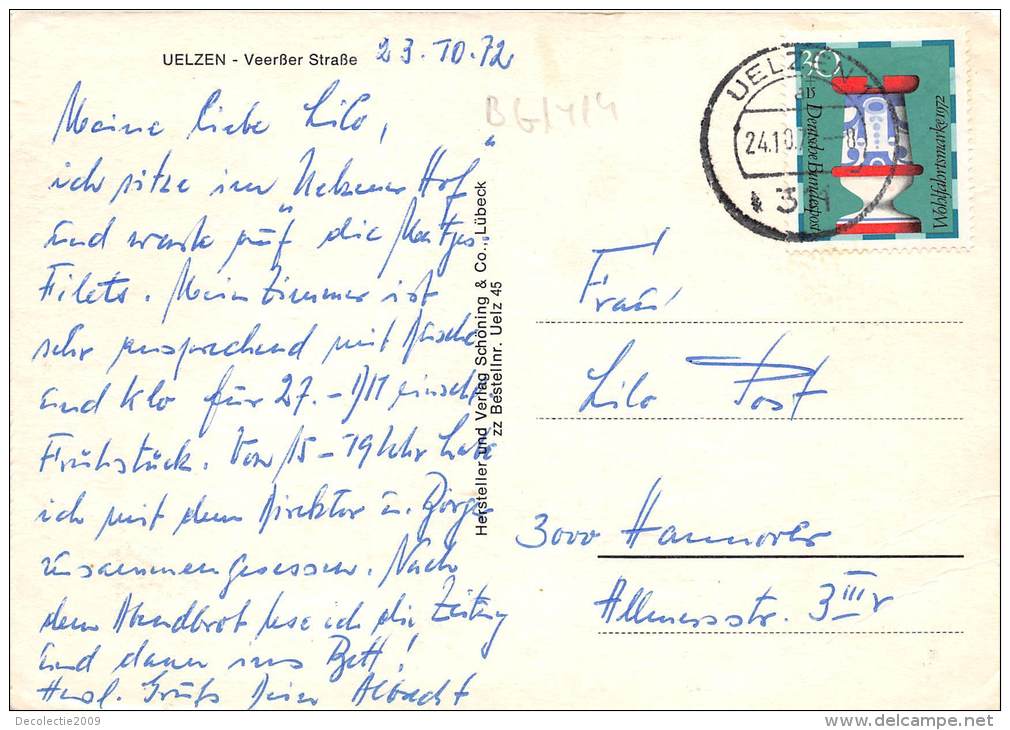 UELZEN - Veerßer Straße
23.10.72
Meine liebe Lilo,
ich sitze im „Uelzener Hof“
und warte auf die Matjes-
Filets. Mein Zimmer ist
sehr ansprechend mit Dusche
und Klo für 27.- DM einschl.
Frühstück. Von 15 - 19 Uhr habe
ich mit dem Direktor u.
zusammengesessen. Nach
dem Abendbrot lese ich die Zeitung
und dann ins Bett!
Herzl. Gruß Dein Albrecht
BG/4/4
Hersteller und Verlag Schöning & Co., Lübeck
zz Bestellnr. Uelz 45
UELZEN
24.10.7 -8
31
30
+15
Deutsche Bundespost
Wohlfahrtsmarke 1972
Frau
Lilo Post
3000 Hannover
Allmersstr. 3 III r
Decolectie2009
www.delcampe.net